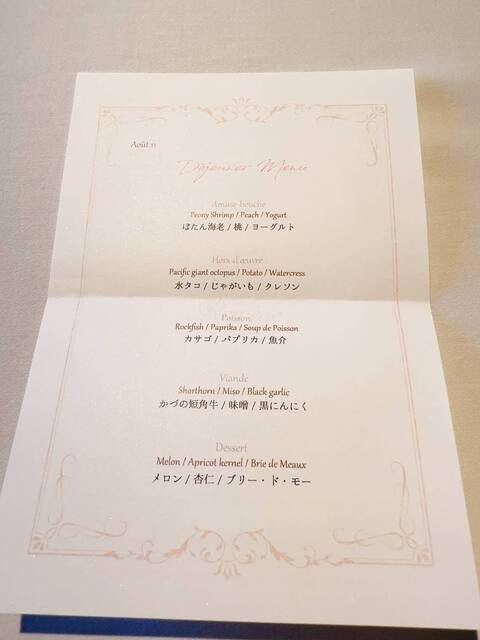 Août 11
Déjeuner Menu
Amuse-bouche
Peony Shrimp / Peach / Yogurt
ぼたん海老 / 桃 / ヨーグルト
Hors-d'œuvre
Pacific giant octopus / Potato / Watercress
水タコ / じゃがいも / クレソン
Poisson
Rockfish / Paprika / Soup de Poisson
カサゴ / パプリカ / 魚介
Viande
Shorthorn / Miso / Black garlic
かづの短角牛 / 味噌 / 黒にんにく
Dessert
Melon / Apricot kernel / Brie de Meaux
メロン / 杏仁 / ブリー・ド・モー